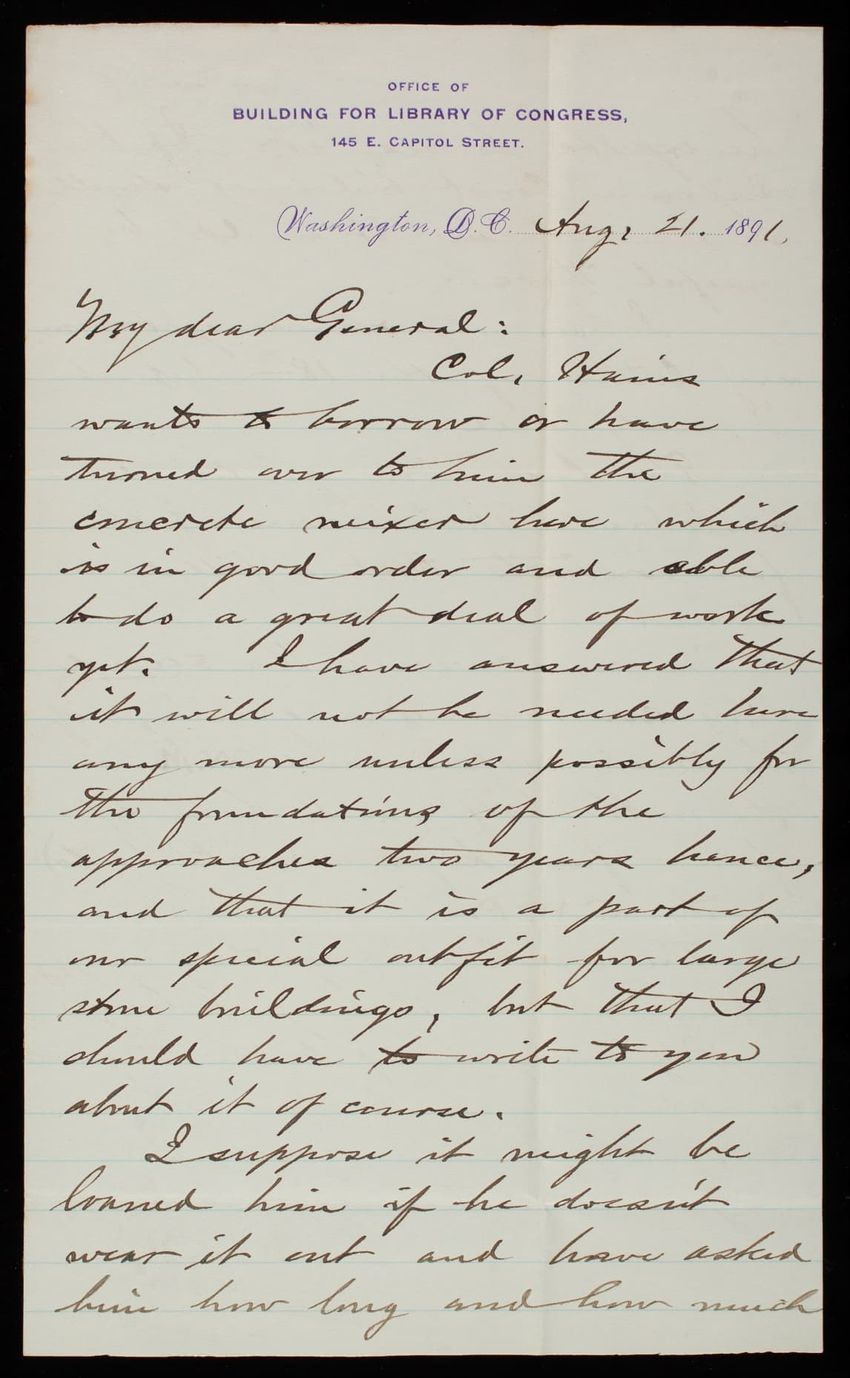 OFFICE OF
BUILDING FOR LIBRARY OF CONGRESS,
145 E. CAPITOL STREET.
Washington, D.C. Aug, 21. 1891.
My dear General:
Col, Hains
wants to borrow or have
turned over to him the
concrete mixer here which
is in good order and able
to do a great deal of work
yet. I have answered that
it will not be needed here
any more unless possibly for
the foundations of the
approaches two years hence,
and that it is a part of
our special outfit for large
stone buildings, but that I
should have to write to you
about it of course.
I suppose it might be
loaned him if he doesn't
wear it out and have asked
him how long and how much